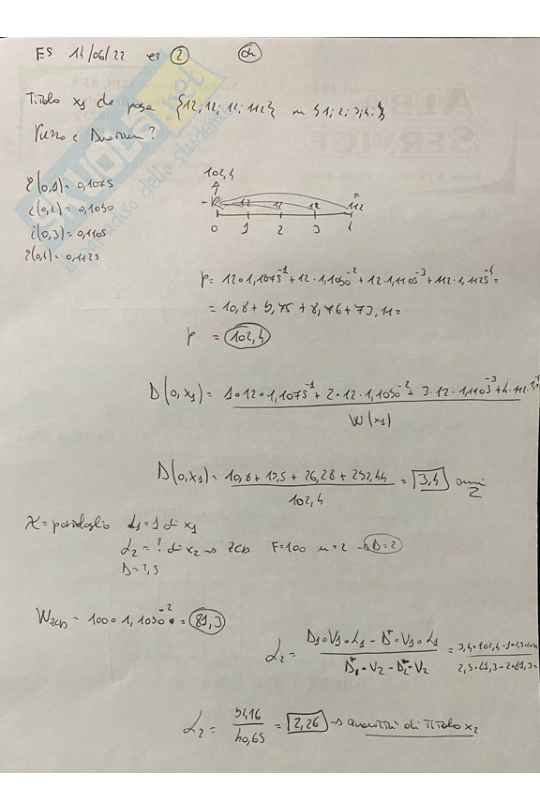 ES 14/06/22 es 2
Titolo x₁ che paga {12, 12, 12, 112} in {1; 2; 3; 4}
Prezzo e Duration?
i(0,1) = 0,1075
i(0,2) = 0,1090
i(0,3) = 0,1105
i(0,4) = 0,1125
102,4
12 12 12 112
0 1 2 3 4
P = 12·1,1075⁻¹ + 12·1,1090⁻² + 12·1,1105⁻³ + 112·1,1125⁻⁴ =
= 10,8 + 9,75 + 8,76 + 73,11 =
P = 102,4
D(0,x₁) = 1·12·1,1075⁻¹ + 2·12·1,1090⁻² + 3·12·1,1105⁻³ + 4·112·1,
W(x₁)
D(0,x₁) = 10,8 + 19,5 + 26,28 + 292,44 = 3,4 anni
102,4
X = portafoglio α₁ = 1 di x₁
α₂ = ? di x₂ → ZCB F=100 n=2 → D=2
D = 2,5
W_ZCB = 100·1,1090⁻² = 81,3
α₂ = D₁·V₁·α₁ - D*·V₁·α₁ = 3,4·102,4-1
D*·V₂ - D₂·V₂ 2,5·81,3-2·81,3
α₂ = 92,16 = 2,26 → quantità di titolo x₂
40,65